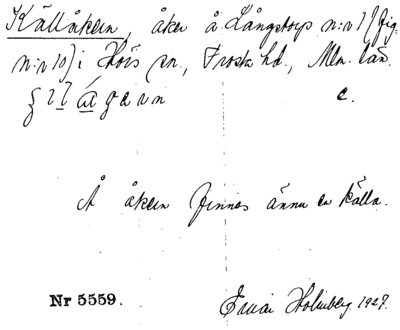 Källåkern, åker å Långstorp n:r 1 (fig.
n:r 10) i Hörs sn., Frosta hd., Mlm. län.
c.
Å åkern finnes ännu en källa.
Nr 5559.
Einar Holmberg 1927.